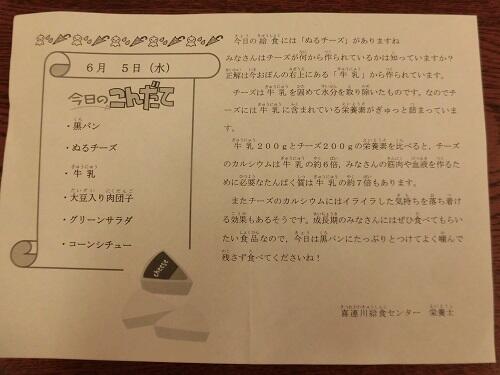 6月 5日(水)
今日のこんだて
・黒パン
・ぬるチーズ
・牛乳
・大豆入り肉団子
・グリーンサラダ
・コーンシチュー
cheese
今日の給食には「ぬるチーズ」がありますね
みなさんはチーズが何から作られているかは知っていますか?
正解は今おぼんの右上にある「牛乳」から作られています。
チーズは牛乳を固めて水分を取り除いたものです。なのでチ
ーズには牛乳に含まれている栄養素がぎゅっと詰まっていま
す。
牛乳200gとチーズ200gの栄養素を比べると、チーズ
のカルシウムは牛乳の約6倍、みなさんの筋肉や血液を作るた
めに必要なたんぱく質は牛乳の約7倍もあります。
またチーズのカルシウムにはイライラした気持ちを落ち着け
る効果もあるそうです。成長期のみなさんにはぜひ食べてもらい
たい食品なので、今日は黒パンにたっぷりとつけてよく噛んで
残さず食べてくださいね!
喜連川給食センター 栄養士